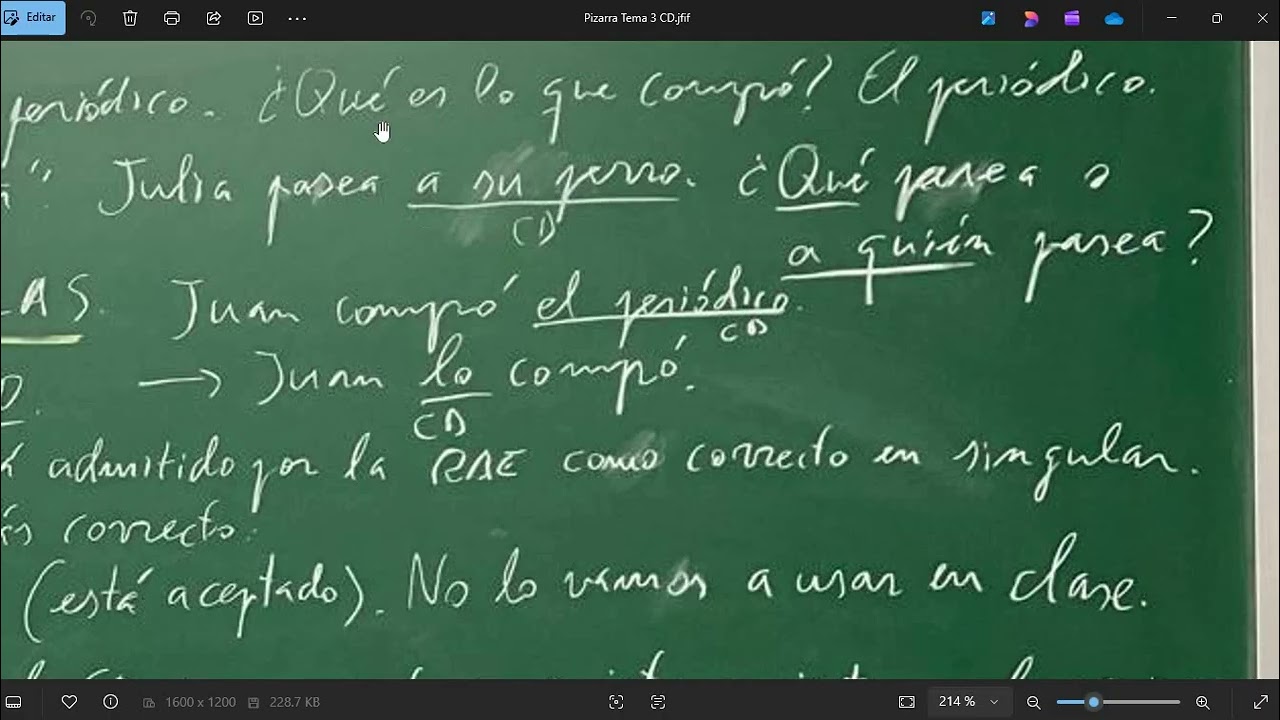 Editar
Pizarra Tema 3 CD.jfif
periódico. ¿Qué es lo que compró? El periódico.
a" Julia pasea a su perro. ¿Qué pasea o
CD
a quién pasea?
LAS. Juan compró el periódico.
CD
→ Juan lo compró.
CD
admitido por la RAE como correcto en singular.
ás correcto.
(está aceptado). No lo vamos a usar en clase.
1600 x 1200 228.7 KB 214 %